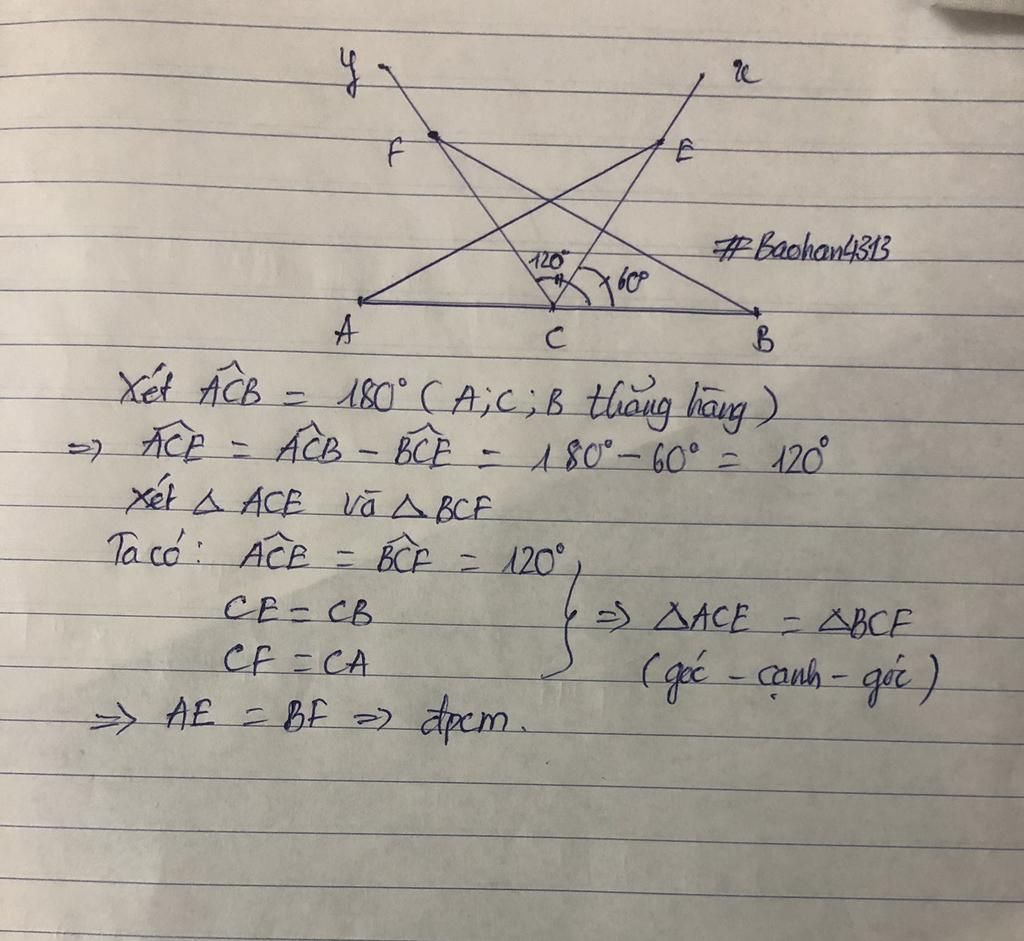 y x
F E
120° 60° #Baohan4313
A C B
Xét ACB̂ = 180° (A;C;B thẳng hàng)
=> ACÊ = ACB̂ - BCÊ = 180° - 60° = 120°
Xét △ ACE và △ BCF
Ta có: ACÊ = BCF̂ = 120°
CE = CB
CF = CA
} => △ACE = △BCF
(góc - cạnh - góc)
=> AE = BF => đpcm.